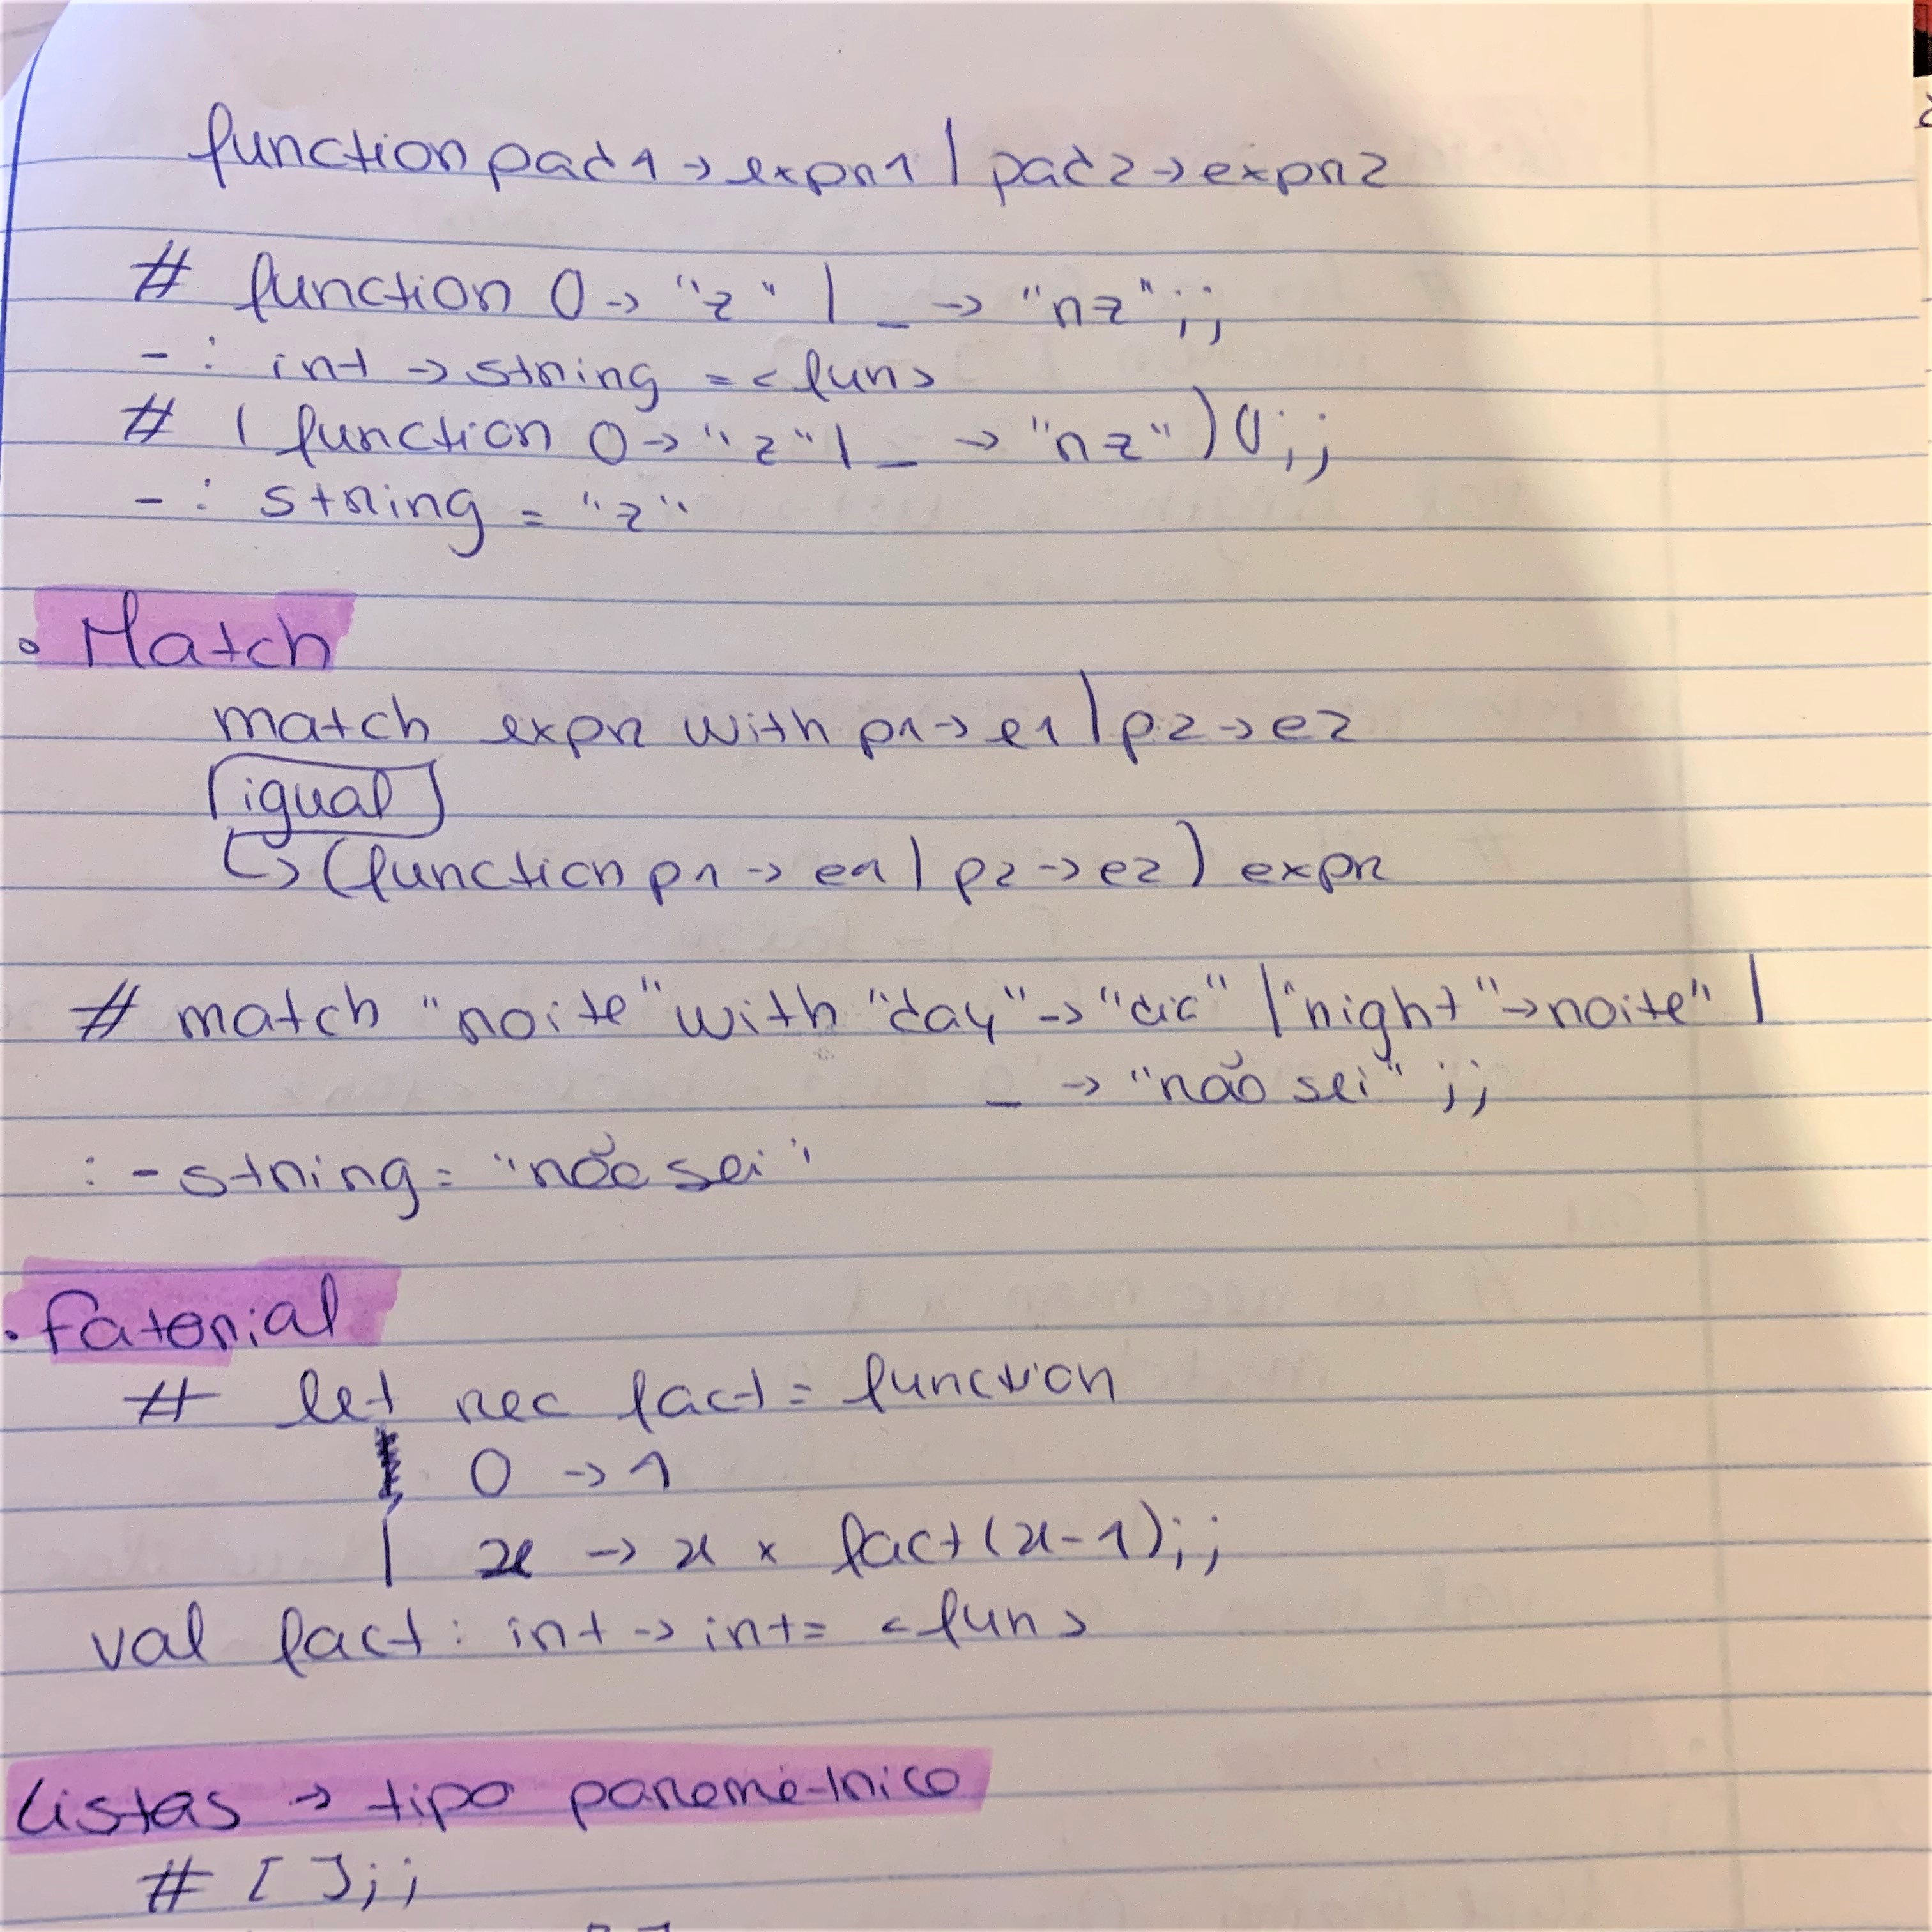 function pad1 → expr1 | pad2 → expr2
# function 0 → "z" | _ → "nz";;
- : int → string = <fun>
# (function 0 → "z" | _ → "nz") 0;;
- : string = "z"
• Match
match expr with p1 → e1 | p2 → e2
igual
↳ (function p1 → e1 | p2 → e2) expr
# match "noite" with "day" → "dia" | "night" → noite" |
_ → "não sei" ;;
: - string = "não sei"
• Fatorial
# let rec fact = function
0 → 1
| x → x × fact (x-1);;
val fact : int → int = <fun>
Listas → tipo paramétrico
# [ ];;